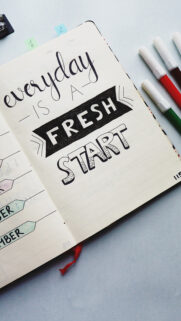 everyday
IS A
FRESH
START
BER
MBER